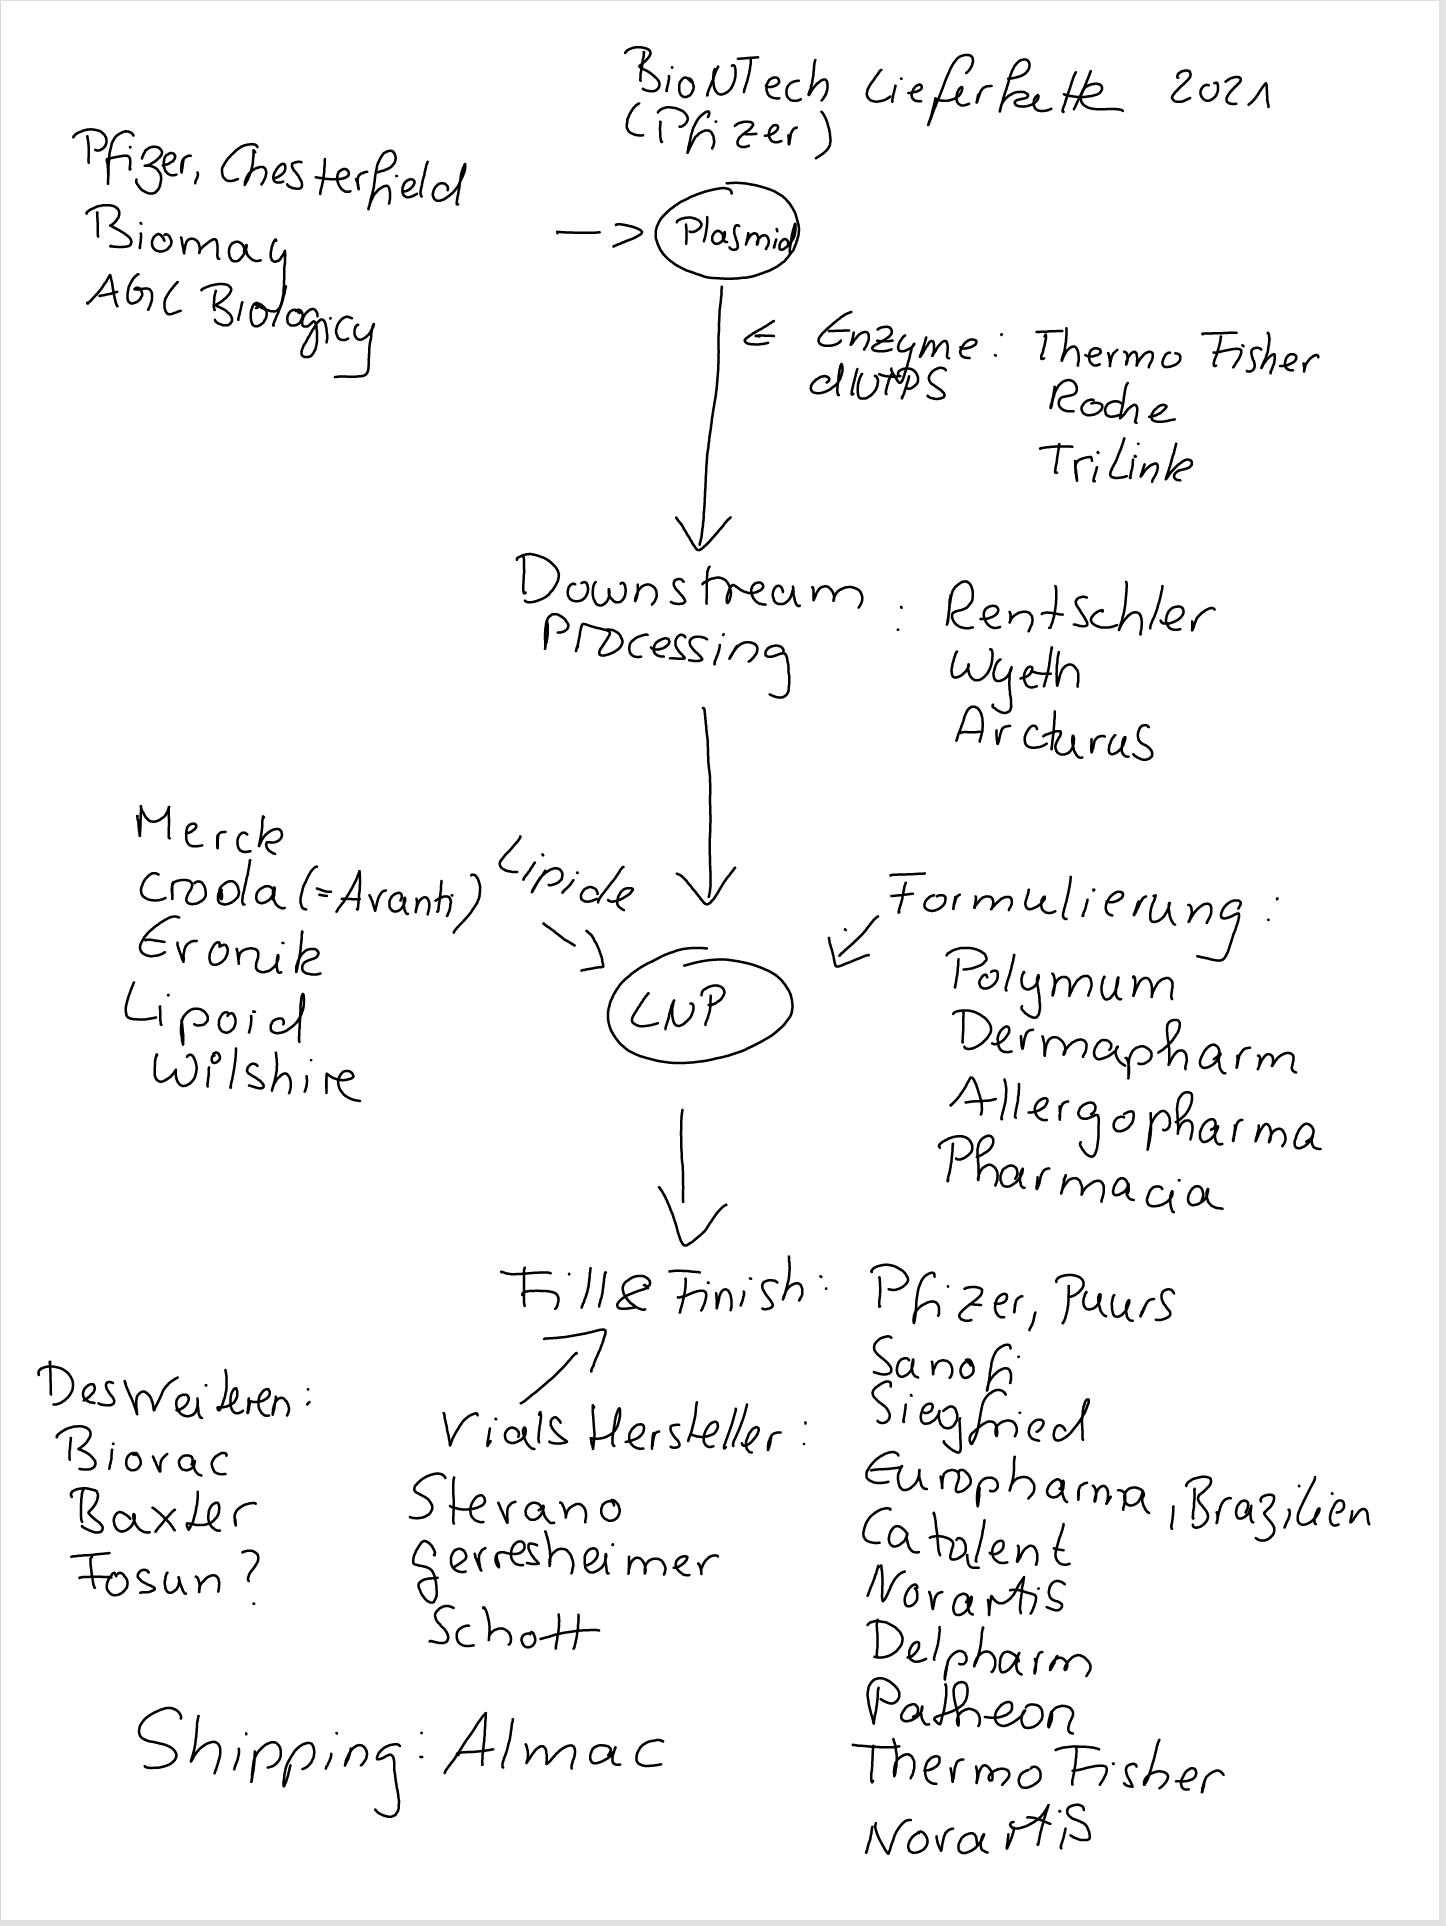 BioNTech Lieferkette 2021
(Pfizer)
Pfizer, Chesterfield
Biomay
AGC Biologicy
-> Plasmid
← Enzyme: Thermo Fisher
dNTPS
Roche
TriLink
Downstream
Processing
: Rentschler
Wyeth
Arcturus
Merck
Croda (=Avanti)
Evonik
Lipoid
Wilshire
Lipide
LNP
Formulierung:
Polymum
Dermapharm
Allergopharma
Pharmacia
Fill & Finish: Pfizer, Puurs
Sanofi
Siegfried
Europharma, Brazilien
Catalent
Novartis
Delpharm
Patheon
Thermo Fisher
Novartis
Vials Hersteller:
Stevano
Gerresheimer
Schott
Des Weiteren:
Biovac
Baxter
Fosun?
Shipping: Almac